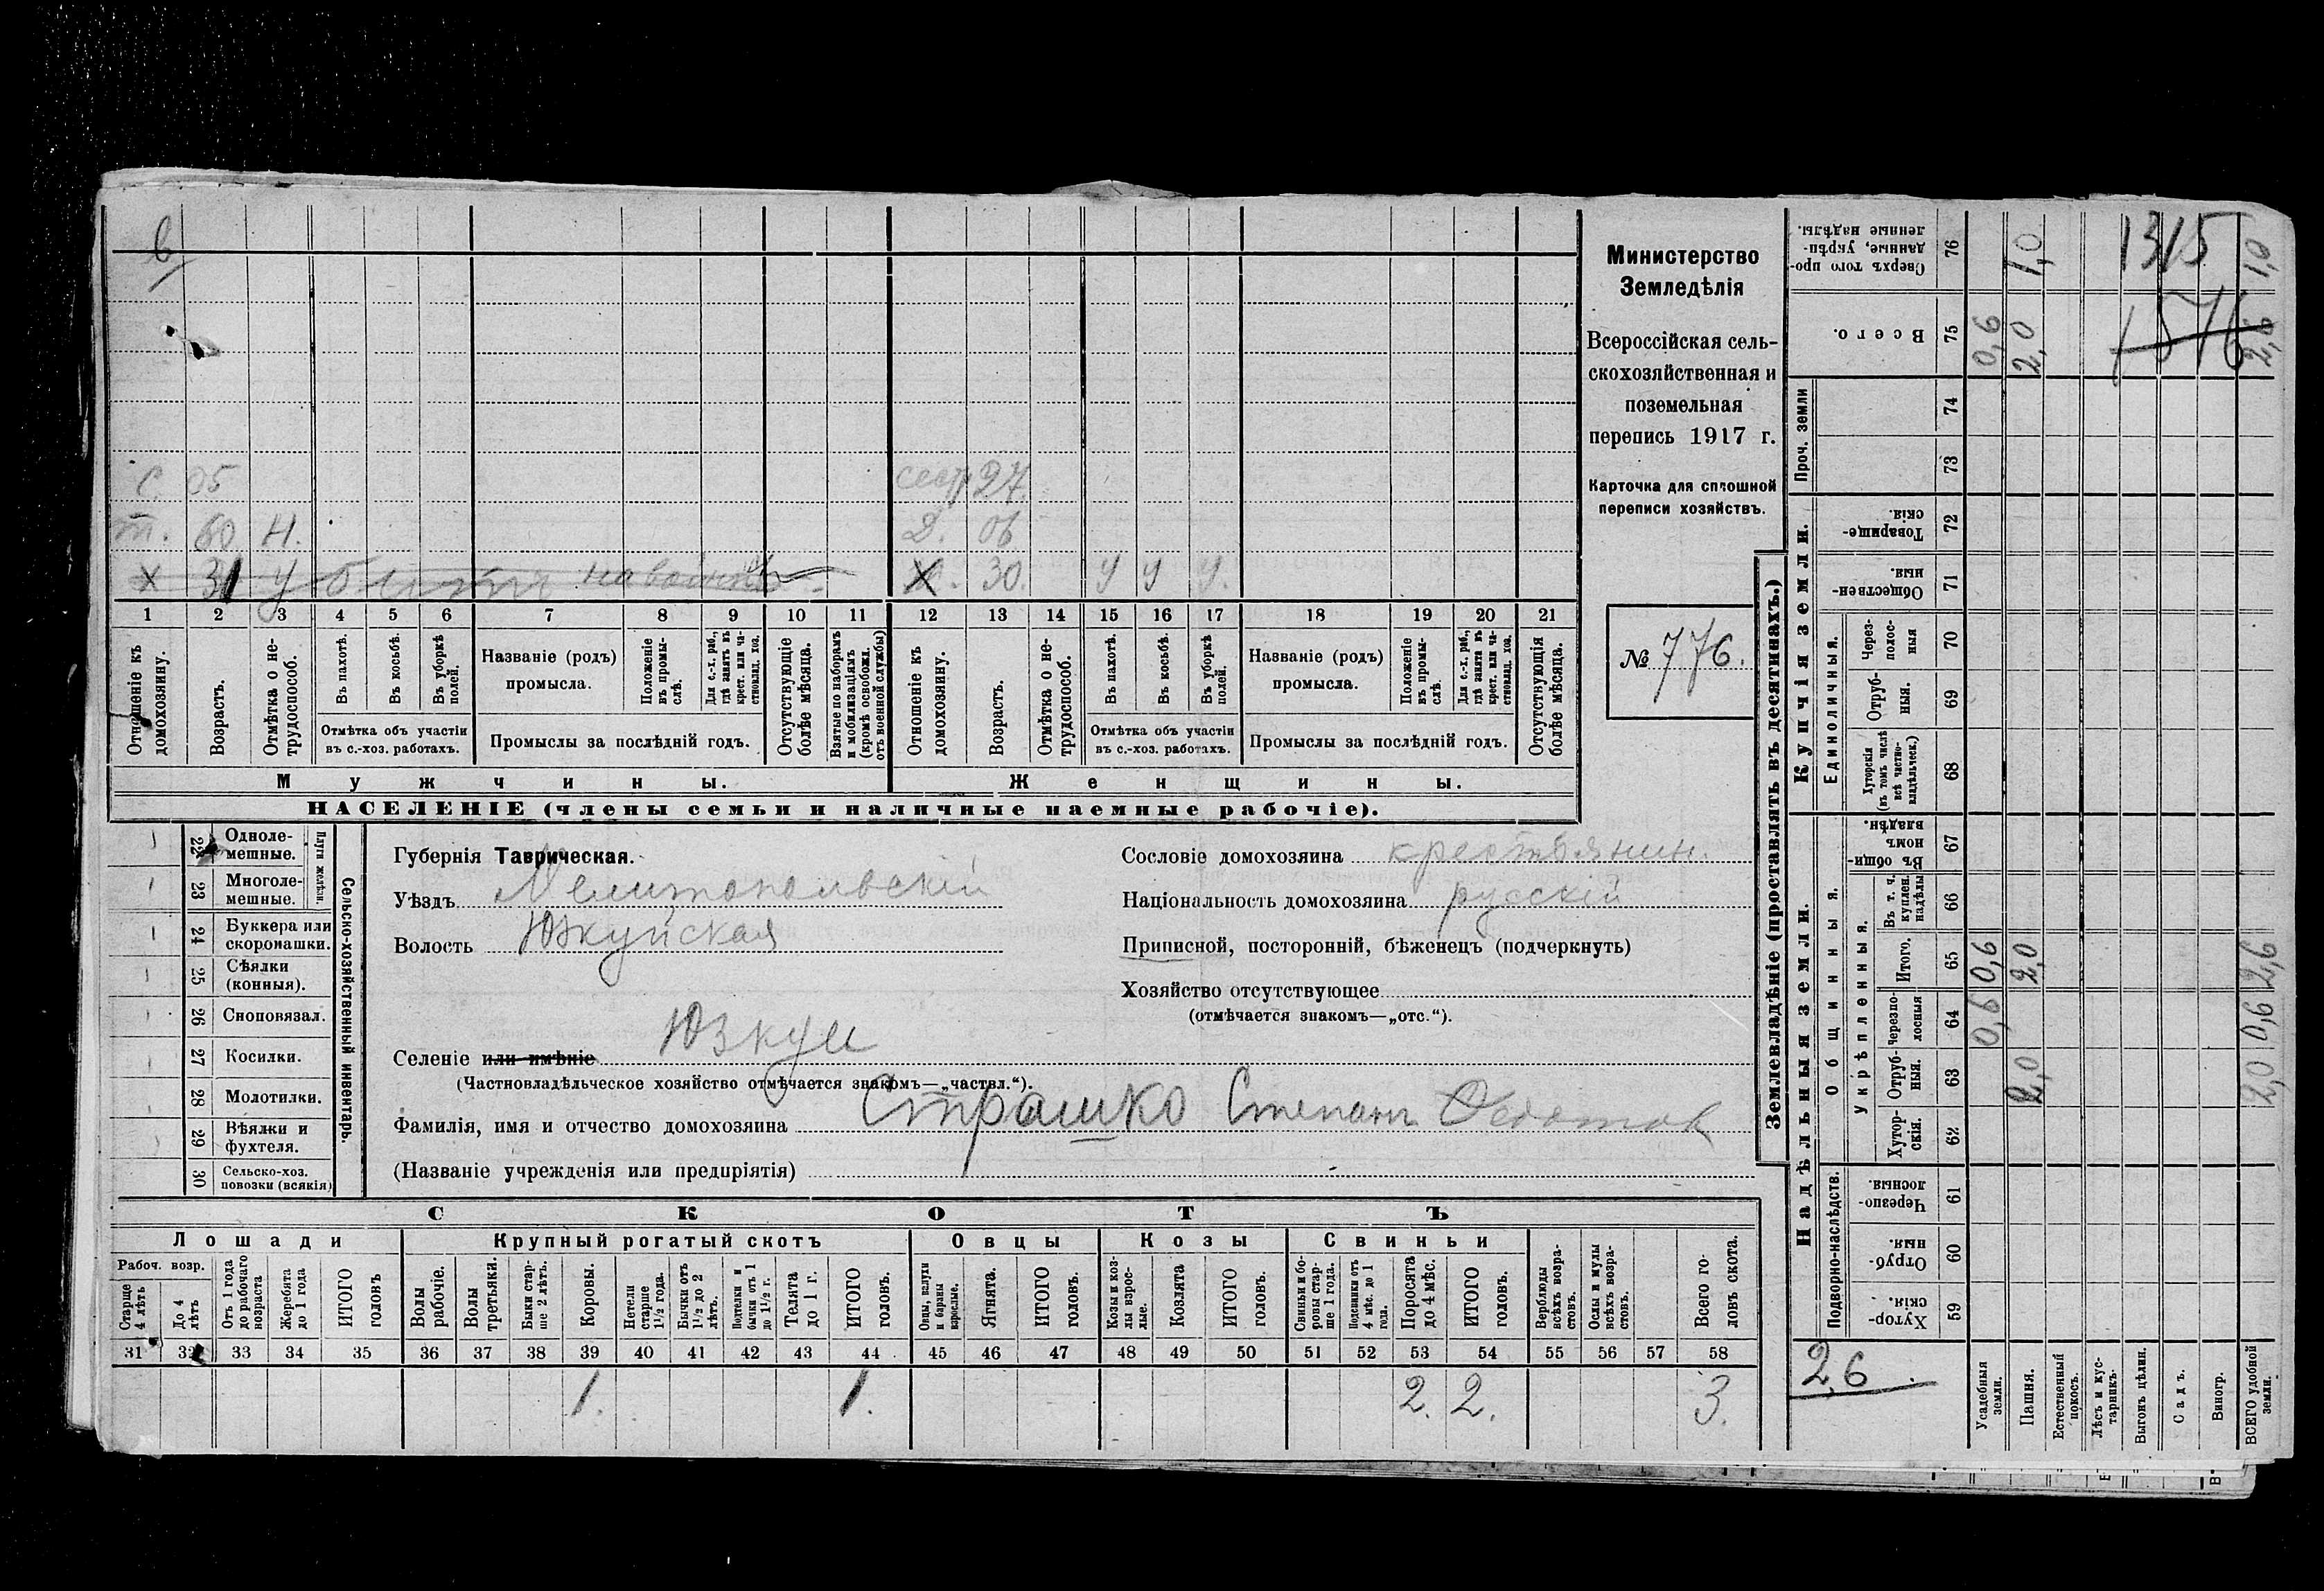 в
с. 05
сестр 27
т. 60 Н.
д. 06
х 31 убитъ на войнѣ
ж. 30. у у у.
1 2 3 4 5 6 7 8 9 10 11 12 13 14 15 16 17 18 19 20 21
Отношеніе къ домохозяину.
Возрастъ.
Отмѣтка о нетрудоспособ.
Въ пахотѣ.
Въ косьбѣ.
Въ уборкѣ полей.
Отмѣтка объ участіи въ с.-хоз. работахъ.
Названіе (родъ) промысла.
Положеніе въ промыслѣ.
Для с.-х. раб., гдѣ занятъ въ крест. или частновлад. хоз.
Промыслы за послѣдній годъ.
Отсутствующіе болѣе мѣсяца.
Взятые по наборамъ и мобилизаціямъ (кромѣ освобожд. отъ военной службы)
Отношеніе къ домохозяину.
Возрастъ.
Отмѣтка о нетрудоспособ.
Въ пахотѣ.
Въ косьбѣ.
Въ уборкѣ полей.
Отмѣтка объ участіи въ с.-хоз. работахъ.
Названіе (родъ) промысла.
Положеніе въ промыслѣ.
Для с.-х. раб., гдѣ занята въ крест. или частновлад. хоз.
Промыслы за послѣдній годъ.
Отсутствующія болѣе мѣсяца.
Мужчины.
Женщины.
НАСЕЛЕНІЕ (члены семьи и наличные наемные рабочіе).
Министерство
Земледѣлія
Всероссійская сель-
скохозяйственная и
поземельная
перепись 1917 г.
Карточка для сплошной
переписи хозяйствъ.
№ 776.
22 Одноле-
мешные.
23 Многоле-
мешные.
Плуги желѣзн.
24 Буккера или
скоропашки.
25 Сѣялки
(конныя).
26 Сноповязал.
27 Косилки.
28 Молотилки.
29 Вѣялки и
фухтеля.
30 Сельско-хоз.
повозки (всякія)
Сельско-хозяйственный инвентарь.
Губернія Таврическая.
Уѣздъ Мелитопольскій
Волость Юзкуйская
Селеніе или имѣніе Юзкуи
(Частновладѣльческое хозяйство отмѣчается знакомъ—„частвл.“).
Фамилія, имя и отчество домохозяина Страшко Степанъ Федотов
(Названіе учрежденія или предпріятія)
Сословіе домохозяина крестьянин.
Національность домохозяина русскій
Приписной, посторонній, бѣженецъ (подчеркнуть)
Хозяйство отсутствующее
(отмѣчается знакомъ—„отс.“).
СКОТЪ
Лошади
Крупный рогатый скотъ
Овцы
Козы
Свиньи
Рабоч. возр.
Старше 4 лѣтъ
До 4 лѣтъ
Отъ 1 года до рабочаго возраста
Жеребята до 1 года
ИТОГО головъ
Волы рабочіе.
Волы третьяки.
Быки старше 2 лѣтъ.
Коровы.
Нетели старше 1½ года.
Бычки отъ 1½ до 2 лѣтъ.
Подтелки и бычки отъ 1 до 1½ г.
Телята до 1 г.
ИТОГО головъ.
Овцы, валухи и бараны взрослые.
Ягнята.
ИТОГО головъ.
Козы и козлы взрослые.
Козлята
ИТОГО головъ.
Свиньи и боровы старше 1 года.
Подсвинки отъ 4 мѣс. до 1 года.
Поросята до 4 мѣс.
ИТОГО головъ.
Верблюды всѣхъ возрастовъ.
Ослы и мулы всѣхъ возрастовъ.
Всего головъ скота.
31 32 33 34 35 36 37 38 39 40 41 42 43 44 45 46 47 48 49 50 51 52 53 54 55 56 57 58
1. 1. 2. 2. 3.
Землевладѣніе (проставлять въ десятинахъ.)
Надѣльныя земли.
Купчія земли.
Проч. земли
Подворно-наслѣдств.
Общинныя.
Укрѣпленныя.
Единоличныя.
Сверхъ того проданные, укрѣпленные надѣлы. 76 1,0 1,0
1315
Всего. 75 0,6 2,0 2,6
1576
74
73
Товарищескія. 72
Общественныя. 71
Черезполосныя 70
Отрубныя. 69
Хуторскія (въ томъ числѣ всѣ частновладѣльческ.) 68
Въ общинномъ владѣн. 67
Въ т. ч. куплен. надѣлы 66
Итого. 65 0,6 2,0 2,6
Черезполосныя 64 0,6 0,6
Отрубныя. 63 2,0 2,0
Хуторскія. 62
Черезполосныя. 61
Отрубныя. 60
Хуторскія. 59
2,6
Усадебныя земли.
Пашня.
Естественный покосъ.
Лѣсъ и кустарникъ.
Выгонъ цѣлин.
Садъ.
Виногр.
ВСЕГО удобной земли.